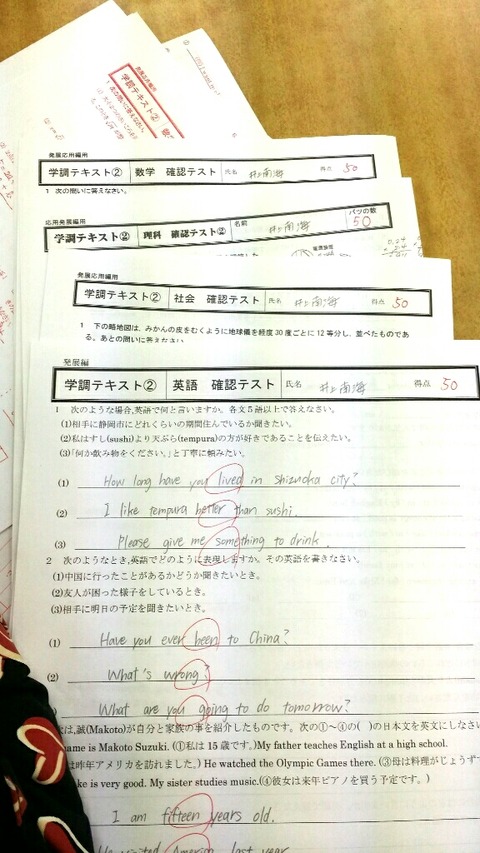 学調テキスト②
発展応用編用
学調テキスト② 数学 確認テスト 氏名 井上南海 得点 50
1 次の問いに答えなさい。
応用発展編用
学調テキスト② 理科 確認テスト② 名前 井上南海 バツの数 50
発展応用編用
学調テキスト② 社会 確認テスト 氏名 井上南海 得点 50
1 下の略地図は、みかんの皮をむくように地球儀を経度30度ごとに12等分し、並べたものであ
る。あとの問いに答えなさい
発展編
学調テキスト② 英語 確認テスト 氏名 井上南海 得点 50
1 次のような場合,英語で何と言いますか。各文5語以上で答えなさい。
(1)相手に静岡市にどれくらいの期間住んでいるか聞きたい。
(2)私はすし(sushi)より天ぷら(tempura)の方が好きであることを伝えたい。
(3)「何か飲み物をください。」と丁寧に頼みたい。
(1) How long have you lived in Shizuoka city?
(2) I like tempura better than sushi.
(3) Please give me something to drink.
2 次のようなとき,英語でどのように表現しますか。その英語を書きなさい。
(1)中国に行ったことがあるかどうか聞きたいとき。
(2)友人が困った様子をしているとき。
(3)相手に明日の予定を聞きたいとき。
(1) Have you ever been to China?
(2) What's wrong?
What are you going to do tomorrow?
は,誠(Makoto)が自分と家族の事を紹介したものです。次の①~④の( )の日本文を英文にしなさい
name is Makoto Suzuki. (①私は15歳です。)My father teaches English at a high school.
は昨年アメリカを訪れました。) He watched the Olympic Games there. (③母は料理がじょうず
ke is very good. My sister studies music.(④彼女は来年ピアノを買う予定です。)
I am fifteen years old.
He visited America last year.